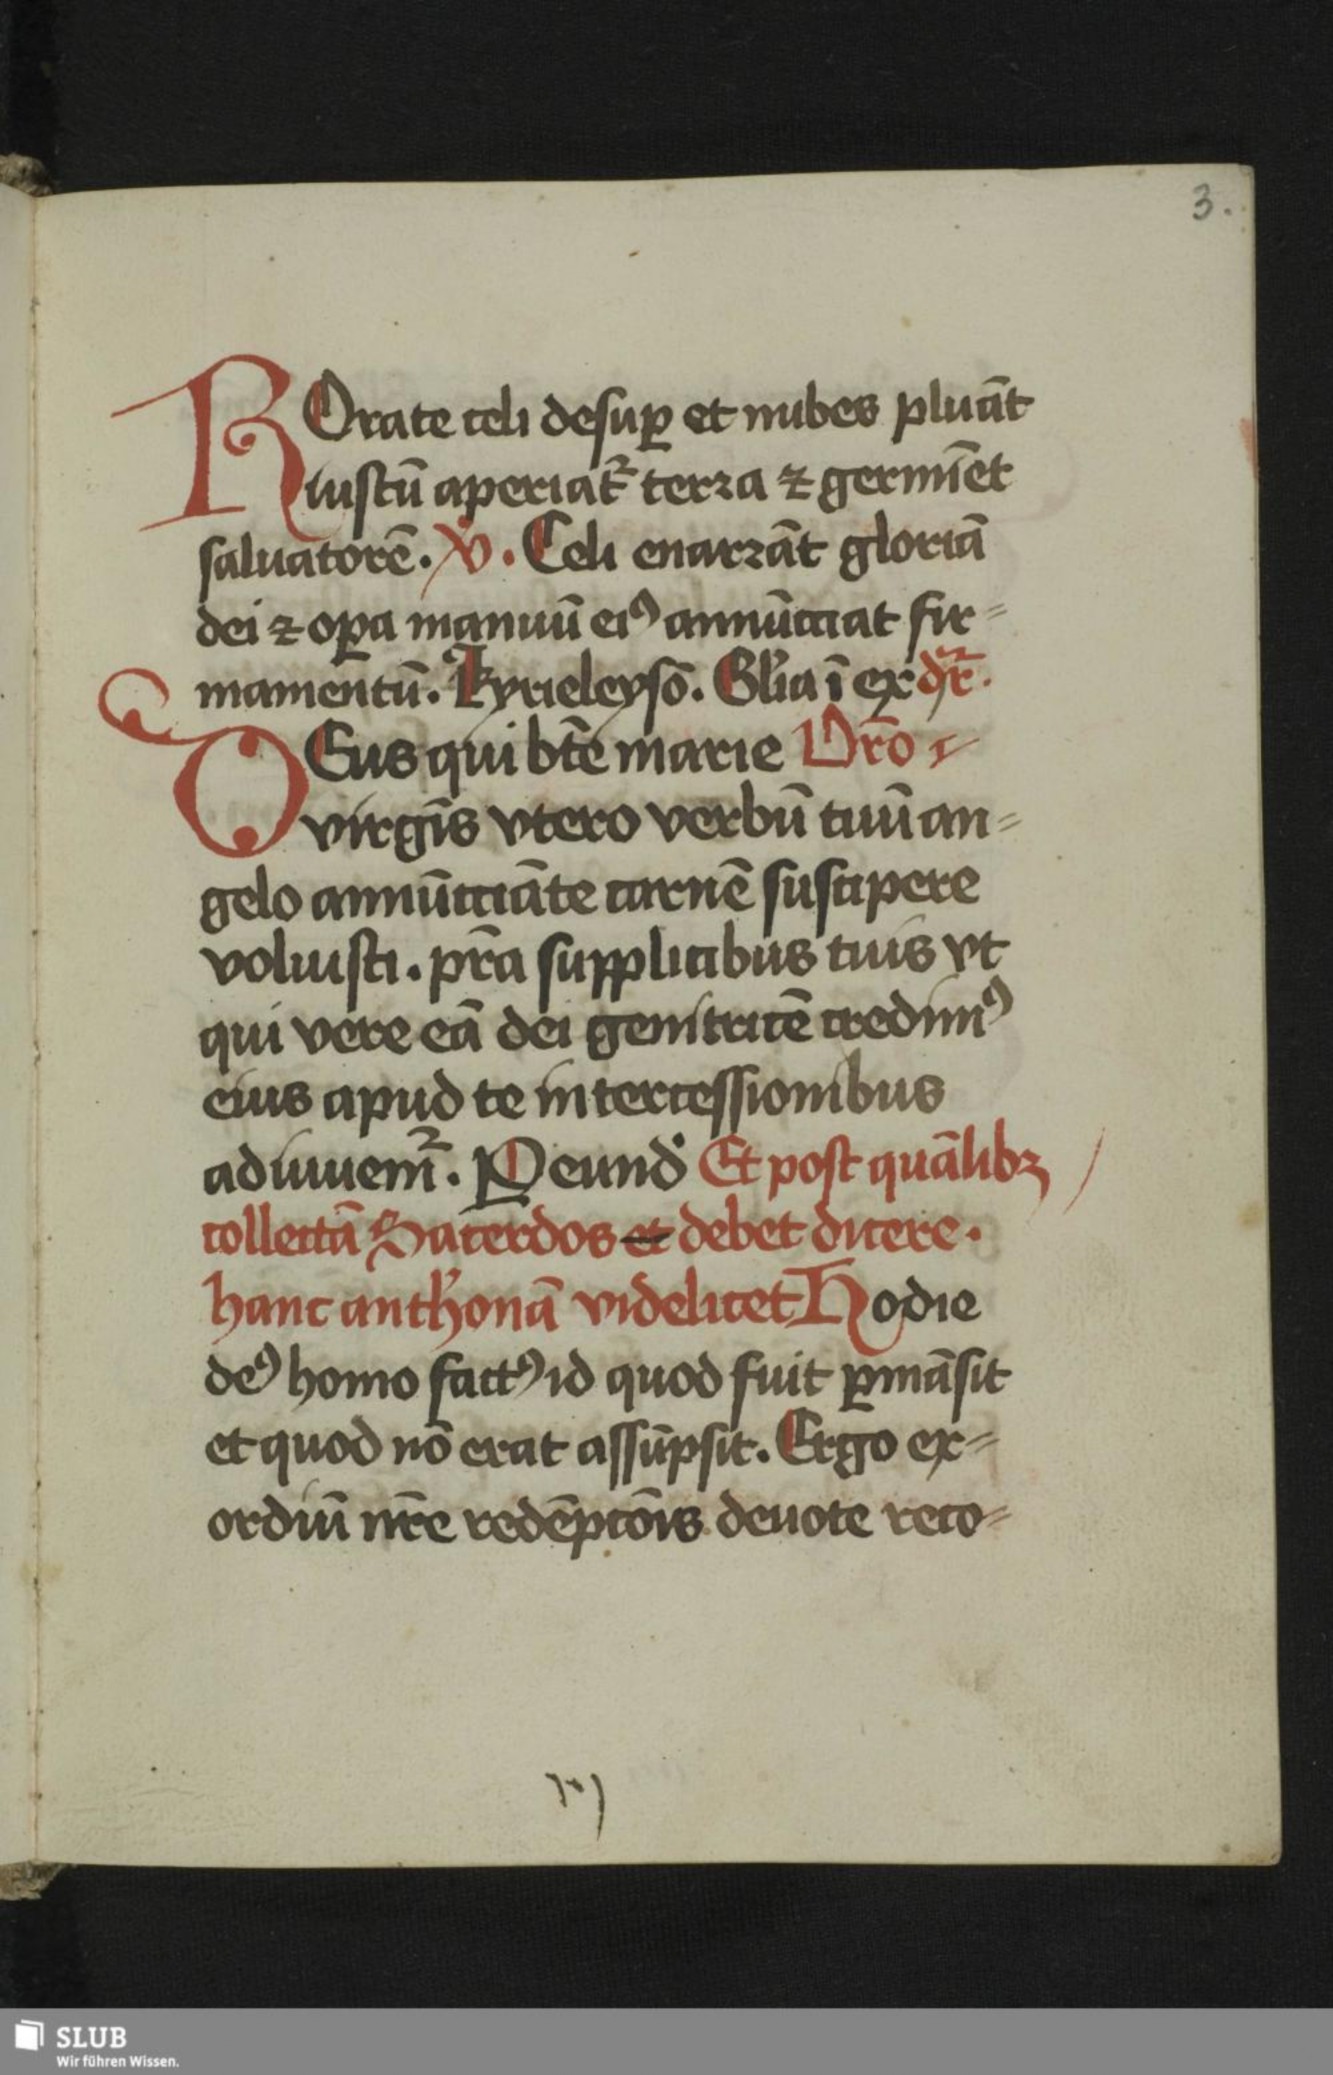 3.
ROrate celi desuꝑ et nubes pluāt
iustū aperiat᷑ terra ⁊ germīet
saluatorē. ℣. Celi enarrāt gloriā
dei ⁊ oꝑa manuū eiꝰ annūcciat fir=
mamentū. kyrieleysō. Gl'ia ī ex dr̄.
DEus qui bt̄e marie Oro
virgīs vtero verbū tuū an=
gelo annūcciāte carnē suscipere
voluisti. pr̄a supplicibus tuis vt
qui vere eā dei genitricē credimꝰ
eius apud te intercessionibus
adiuuem᷑. P eund' Et post quālibꝫ
collectā Sacerdos et debet dicere.
hanc anth'onā videlicet Hodie
deꝰ homo factꝰ id quod fuit ꝑmāsit
et quod nō erat assūpsit. Ergo ex=
ordiū nr̄e redēptōis deuote reco=
SLUB
Wir führen Wissen.